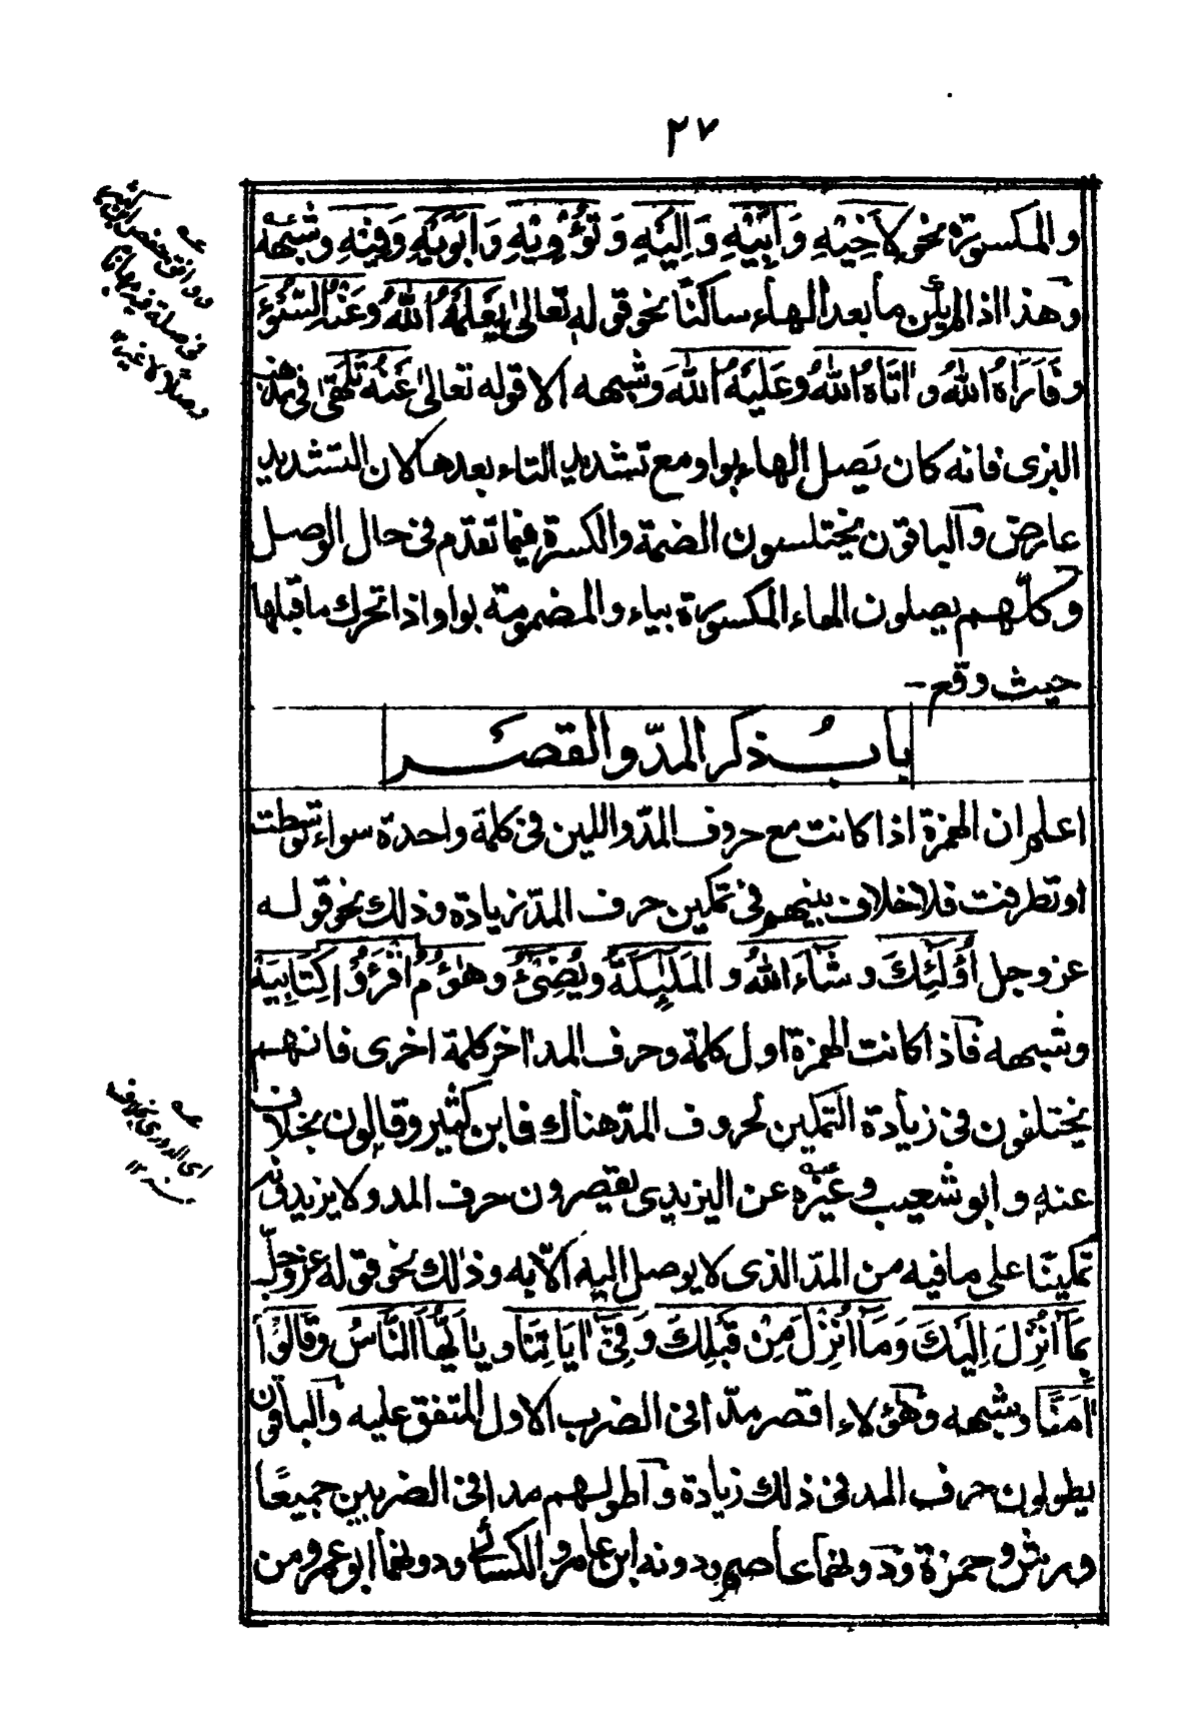 ٢٧
والمكسورة نحو لاَخِيْهِ وَاَبِيْهِ وَاِلَيْهِ وَتُؤْوِيْهِ وَاَبَوَيْهِ وَفِيْهِ وشبهه
وهذا اذا لم يلق ما بعد الهاء ساكنًا نحو قوله تعالىٰ يَعْلَمْهُ اللهُ وعَنْهُ السُّوْٓءَ
وفَاَرَاهُ اللهُ واٰتَاهُ اللهُ وعَلَيْهُ اللهَ وشبهه الا قوله تعالىٰ عَنْهُ تَلَهّٰى فى مذهب
البزى فانه كان يَصِل الهاء بواو مع تشديد التاء بعدها لان التشديد
عارض والباقون يختلسون الضمة والكسرة فيما تقدّم فى حال الوصل
وكلّهم يصلون الهاء المكسورة بياء والمضمومة بواو اذا تحرك ما قبلها
حيث وقع -
بابُ ذكر المدّ والقصر
اعلم ان الهمزة اذا كانت مع حروف المدّ واللين فى كلمة واحدة سواء توسّطت
او تطرفت فلا خلاف بينهم فى تمكين حرف المدّ زيادة وذلك نحو قوله
عز وجل اُولٰٓئِكَ و شَآءَ اللهُ و المَلٰٓئِكَةُ ويُضِيْٓءُ وهَآؤُمُ اقْرَءُوْا كِتَابِيَهْ
وشبهه فاذا كانت الهمزة اول كلمة وحرف المد اٰخر كلمة اخرى فانهم
يختلفون فى زيادة التمكين لحروف المدّ هناك فابن كثير وقالون بخلاف
عنه وابو شعيب وغيره عن اليزيدى يقصرون حرف المد ولا يزيدونه
تمكينًا على ما فيه من المدّ الذى لا يوصل اليه الّا به وذٰلك نحو قوله عزّ وجلّ
بِمَآ اُنْزِلَ اِلَيْكَ وَمَآ اُنْزِلَ مِنْ قَبْلِكَ وَ فِىْٓ اٰيَاتِنَا و يٰٓاَيُّهَا النَّاسُ وقَالُوْٓا
اٰمَنَّا وشبهه وهٰؤلاء اقصر مدّا فى الضرب الاول المتفق عليه والباقون
يطولون حرف المد فى ذلك زيادة واطولهم مدا فى الضربين جميعًا
ورش وحمزة ودونهما عاصم ودونه ابن عامر والكسائى ودونهما ابو عمرو من
عـه
ووافق حفص ابن كثير
فى صلة فيه مهانا
وصلا لا غير ١٢
عـه
اى الدورى بخلاف
عنه ١٢